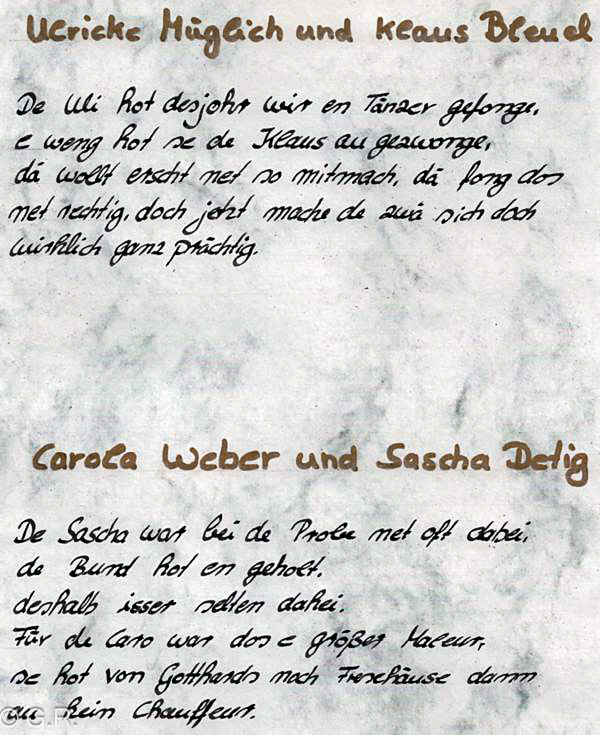 Ulricke Müglich und Klaus Bleuel
De Uli hot desjohr wir en Tänzer gefonge,
e weng hot se de Klaus au gezwonge,
dä wollt erscht net so mitmach, dä fong dos
net rechtig, doch jetzt mache de zwä sich doch
wirklich ganz prächtig.
Carola Weber und Sascha Detig
De Sascha war bei de Probe net oft dabei,
de Bund hot en geholt,
deshalb isser selten dahei.
Für de Caro war dos e größer Maleur,
se hot von Gotthards noch Fresehäuse dann
au kein Chauffeur.
© G.R.